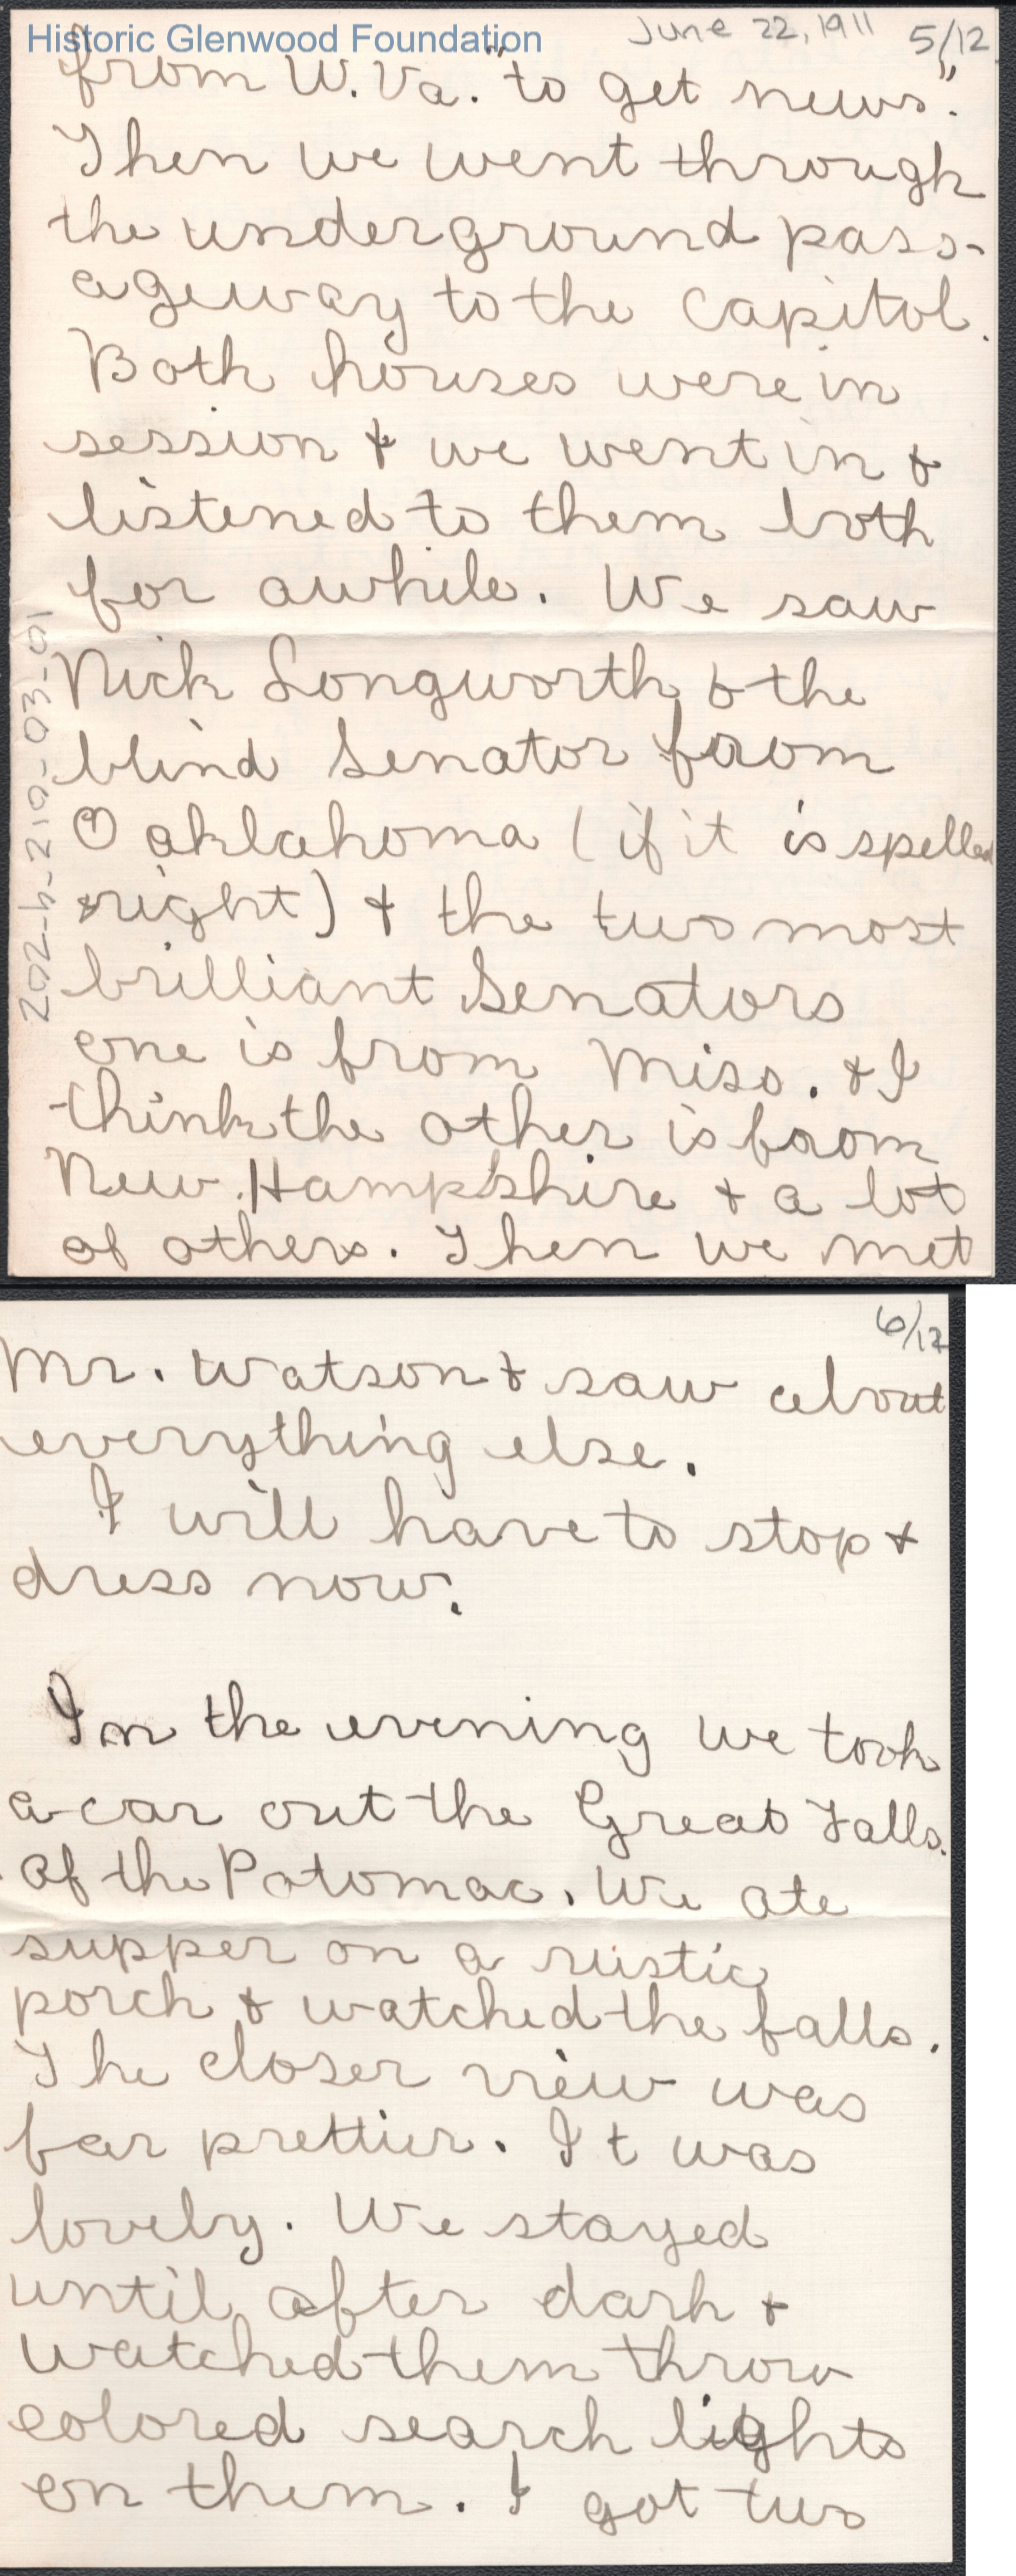 Historic Glenwood Foundation
June 22, 1911 5/12
from W. Va. "to get news".
Then we went through
the underground pass-
ageway to the Capitol.
Both houses were in
session & we went in &
listened to them both
for awhile. We saw
Nick Longworth & the
blind Senator from
Ooklahoma (if it is spelled
right) & the two most
brilliant Senators
one is from Miss. & I
think the other is from
New Hampshire & a lot
of others. Then we met
202-b-210-03-01
6/12
Mr. Watson & saw about
everything else.
I will have to stop &
dress now.
In the evening we took
a car out the Great Falls.
of the Potomac. We ate
supper on a rustic
porch & watched the falls.
The closer view was
far prettier. It was
lovely. We stayed
until after dark &
watched them throw
colored search lights
on them. I got two